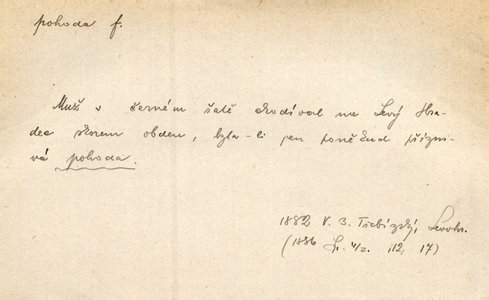 pohoda f.
Muž v černém šatě chodíval na Levý Hra-
dec skorem obden, byla-li jen poněkud přízni-
vá pohoda.
1882 V. B. Třebízský, Levohr.
(1886 12, 17)